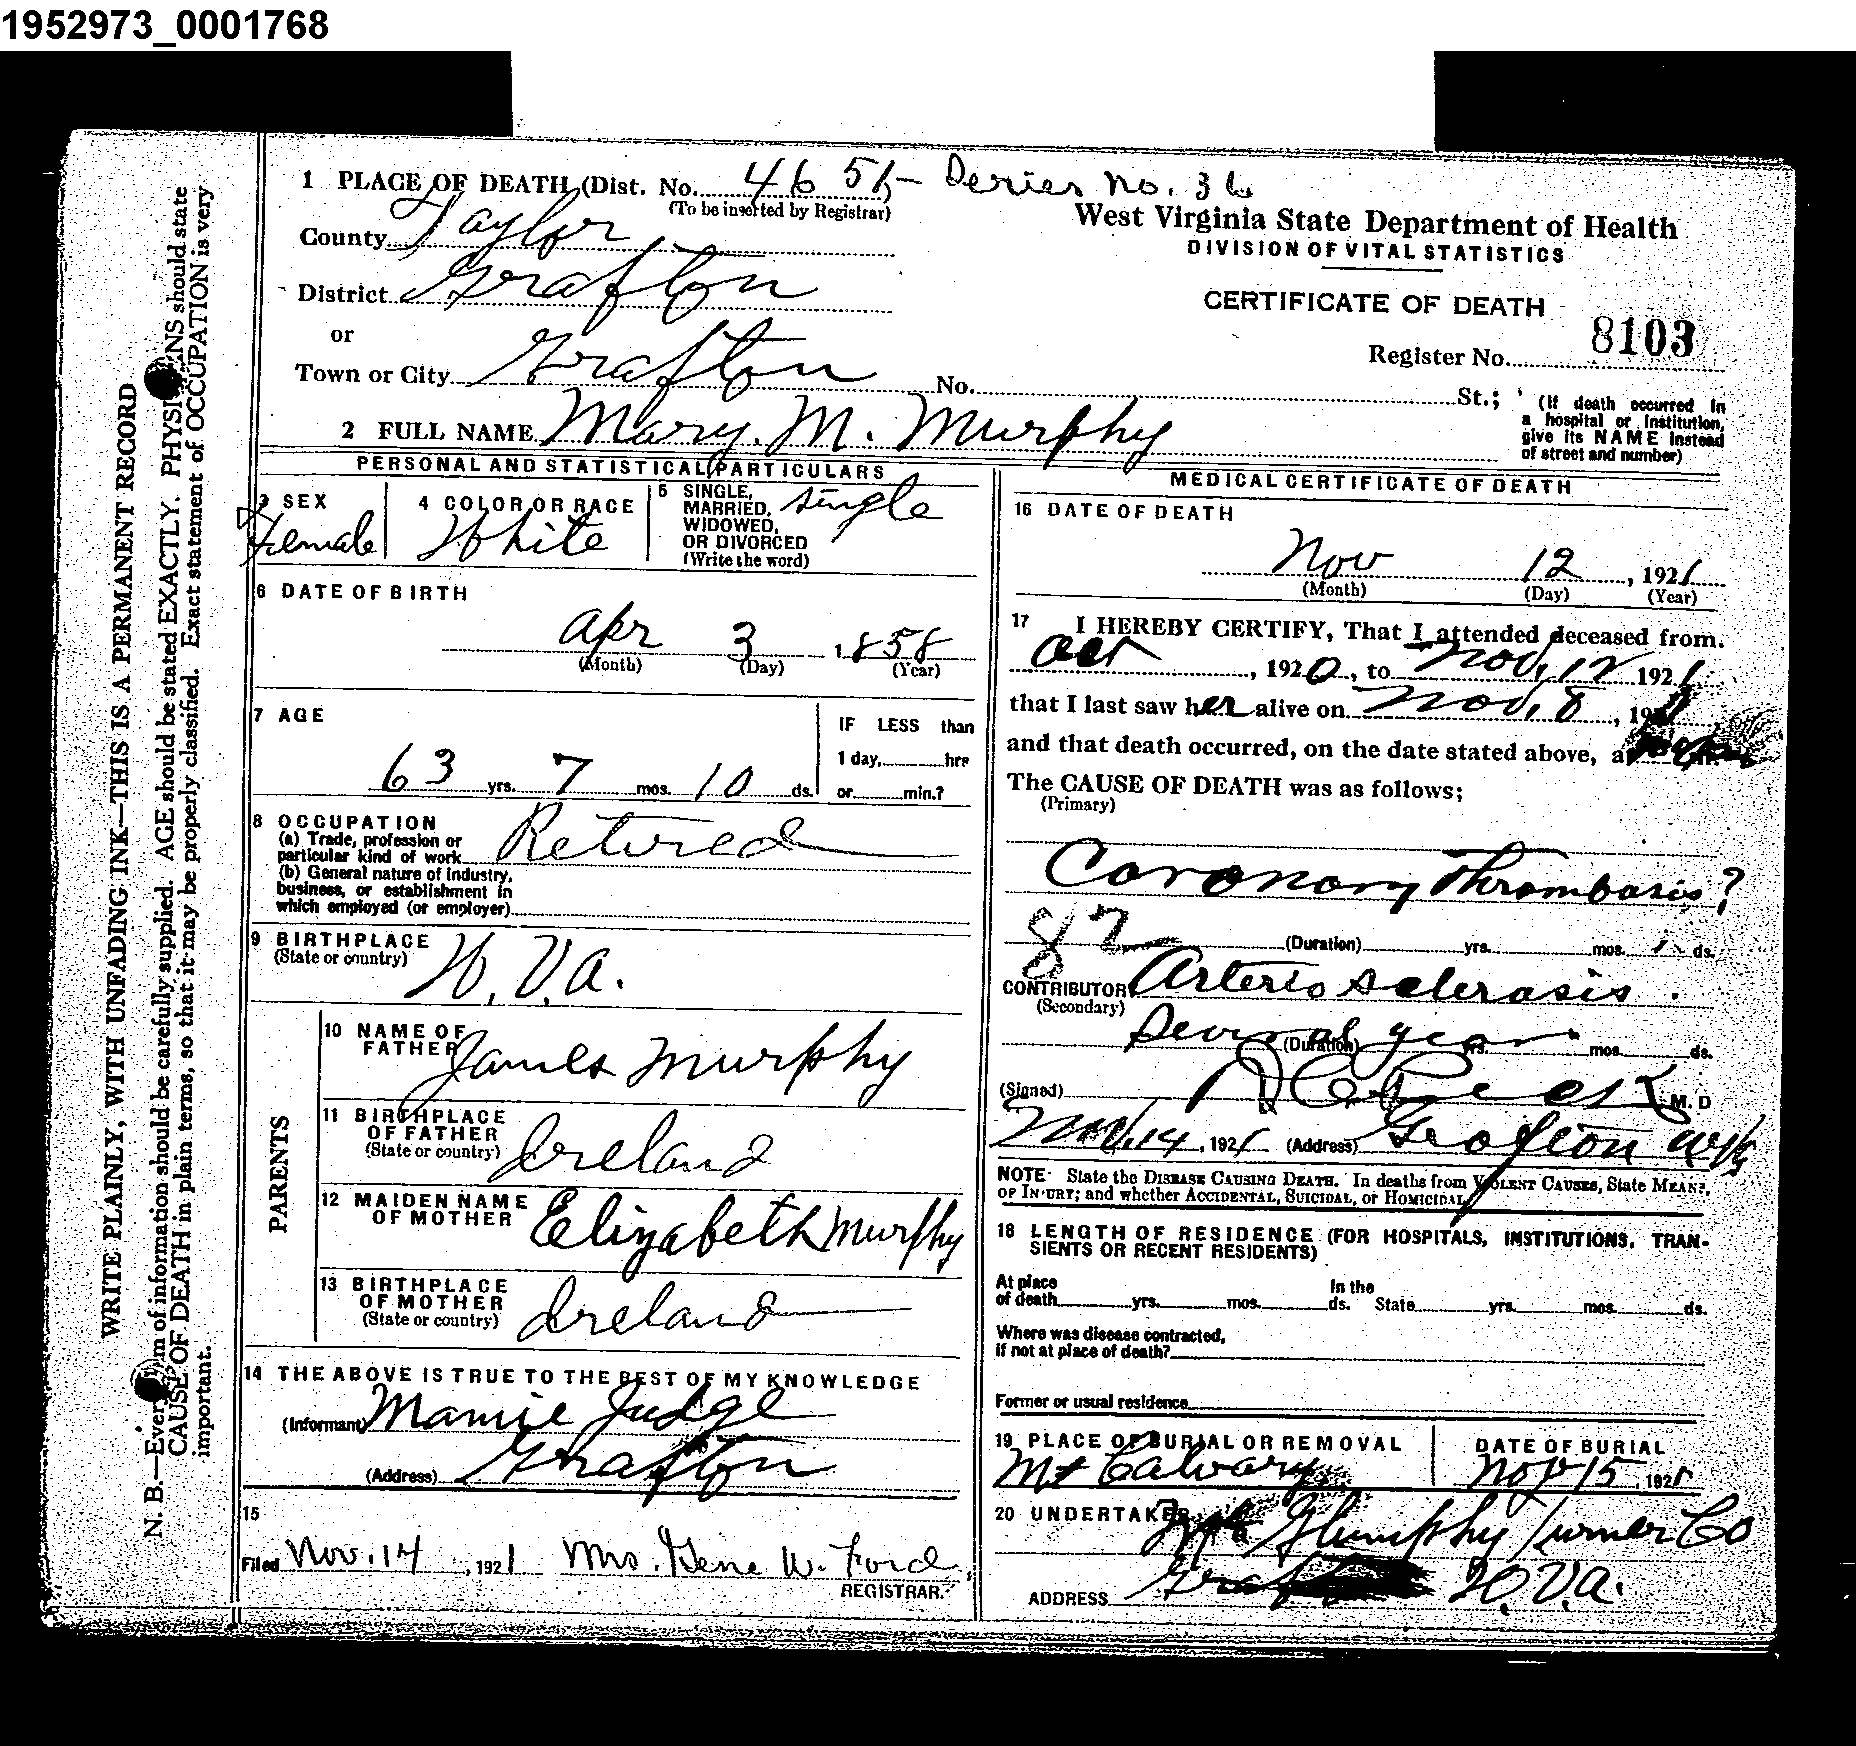 1952973_0001768
1 PLACE OF DEATH (Dist. No. 4651— Series No. 36
(To be inserted by Registrar)
County Taylor
West Virginia State Department of Health
DIVISION OF VITAL STATISTICS
District Grafton
CERTIFICATE OF DEATH
or
Register No. 8103
Town or City Grafton No. St.;
(If death occurred in
a hospital or institution,
give its NAME instead
of street and number)
2 FULL NAME Mary. M. Murphy
PERSONAL AND STATISTICAL PARTICULARS
3 SEX
Female
4 COLOR OR RACE
White
5 SINGLE,
MARRIED,
WIDOWED,
OR DIVORCED
(Write the word)
single
6 DATE OF BIRTH
Apr 3 1858
(Month) (Day) (Year)
7 AGE
63 yrs. 7 mos. 10 ds.
IF LESS than
1 day, hrs
or min.?
8 OCCUPATION
(a) Trade, profession or
particular kind of work Retired
(b) General nature of Industry,
business, or establishment in
which employed (or employer)
9 BIRTHPLACE
(State or country) W. Va.
PARENTS
10 NAME OF
FATHER James Murphy
11 BIRTHPLACE
OF FATHER
(State or country) Ireland
12 MAIDEN NAME
OF MOTHER Elizabeth Murphy
13 BIRTHPLACE
OF MOTHER
(State or country) Ireland
14 THE ABOVE IS TRUE TO THE BEST OF MY KNOWLEDGE
(Informant) Mamie Judge
(Address) Grafton
15
Filed Nov. 14, 1921 Mrs. Gene W. Ford
REGISTRAR.
MEDICAL CERTIFICATE OF DEATH
16 DATE OF DEATH
Nov 12, 1921
(Month) (Day) (Year)
17 I HEREBY CERTIFY, That I attended deceased from
Oct, 1920, to Nov, 12 1921
that I last saw her alive on Nov, 8, 1921
and that death occurred, on the date stated above, a
The CAUSE OF DEATH was as follows;
(Primary)
Coronary Thrombosis?
82 (Duration) yrs. mos. ds.
CONTRIBUTORY Arterio sclerosis.
(Secondary)
Several years
(Duration) yrs. mos. ds.
(Signed) Peck M. D
Nov. 14, 1921 (Address) Grafton W Va
NOTE State the DISEASE CAUSING DEATH. In deaths from VIOLENT CAUSES, State MEANS,
OF INJURY; and whether ACCIDENTAL, SUICIDAL, or HOMICIDAL
18 LENGTH OF RESIDENCE (FOR HOSPITALS, INSTITUTIONS, TRAN-
SIENTS OR RECENT RESIDENTS)
At place
of death yrs. mos. ds.
In the
State yrs. mos. ds.
Where was disease contracted,
if not at place of death?
Former or usual residence
19 PLACE OF BURIAL OR REMOVAL
Mt Calvary
DATE OF BURIAL
Nov 15, 1921
20 UNDERTAKER
Glumphy Turner Co
ADDRESS W. Va.
WRITE PLAINLY, WITH UNFADING INK—THIS IS A PERMANENT RECORD
N. B.—Every item of information should be carefully supplied. AGE should be stated EXACTLY. PHYSICIANS should state
CAUSE OF DEATH in plain terms, so that it may be properly classified. Exact statement of OCCUPATION is very
important.